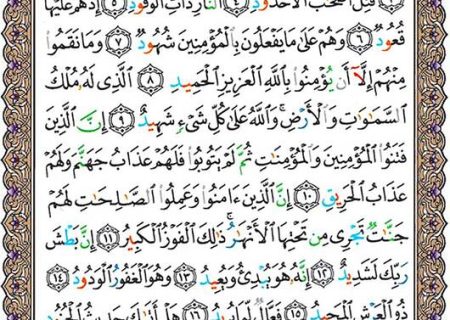 قُتِلَ أَصْحَٰبُ ٱلْأُخْدُودِ ٤ ٱلنَّارِ ذَاتِ ٱلْوَقُودِ ٥ إِذْ هُمْ عَلَيْهَا
قُعُودٌ ٦ وَهُمْ عَلَىٰ مَا يَفْعَلُونَ بِٱلْمُؤْمِنِينَ شُهُودٌ ٧ وَمَا نَقَمُوا۟
مِنْهُمْ إِلَّآ أَن يُؤْمِنُوا۟ بِٱللَّهِ ٱلْعَزِيزِ ٱلْحَمِيدِ ٨ ٱلَّذِى لَهُۥ مُلْكُ
ٱلسَّمَٰوَٰتِ وَٱلْأَرْضِ ۚ وَٱللَّهُ عَلَىٰ كُلِّ شَىْءٍ شَهِيدٌ ٩ إِنَّ ٱلَّذِينَ
فَتَنُوا۟ ٱلْمُؤْمِنِينَ وَٱلْمُؤْمِنَٰتِ ثُمَّ لَمْ يَتُوبُوا۟ فَلَهُمْ عَذَابُ جَهَنَّمَ وَلَهُمْ
عَذَابُ ٱلْحَرِيقِ ١٠ إِنَّ ٱلَّذِينَ ءَامَنُوا۟ وَعَمِلُوا۟ ٱلصَّٰلِحَٰتِ لَهُمْ
جَنَّٰتٌ تَجْرِى مِن تَحْتِهَا ٱلْأَنْهَٰرُ ۚ ذَٰلِكَ ٱلْفَوْزُ ٱلْكَبِيرُ ١١ إِنَّ بَطْشَ
رَبِّكَ لَشَدِيدٌ ١٢ إِنَّهُۥ هُوَ يُبْدِئُ وَيُعِيدُ ١٣ وَهُوَ ٱلْغَفُورُ ٱلْوَدُودُ ١٤
ذُو ٱلْعَرْشِ ٱلْمَجِيدُ ١٥ فَعَّالٌ لِّمَا يُرِيدُ ١٦ هَلْ أَتَىٰكَ حَدِيثُ ٱلْجُنُودِ